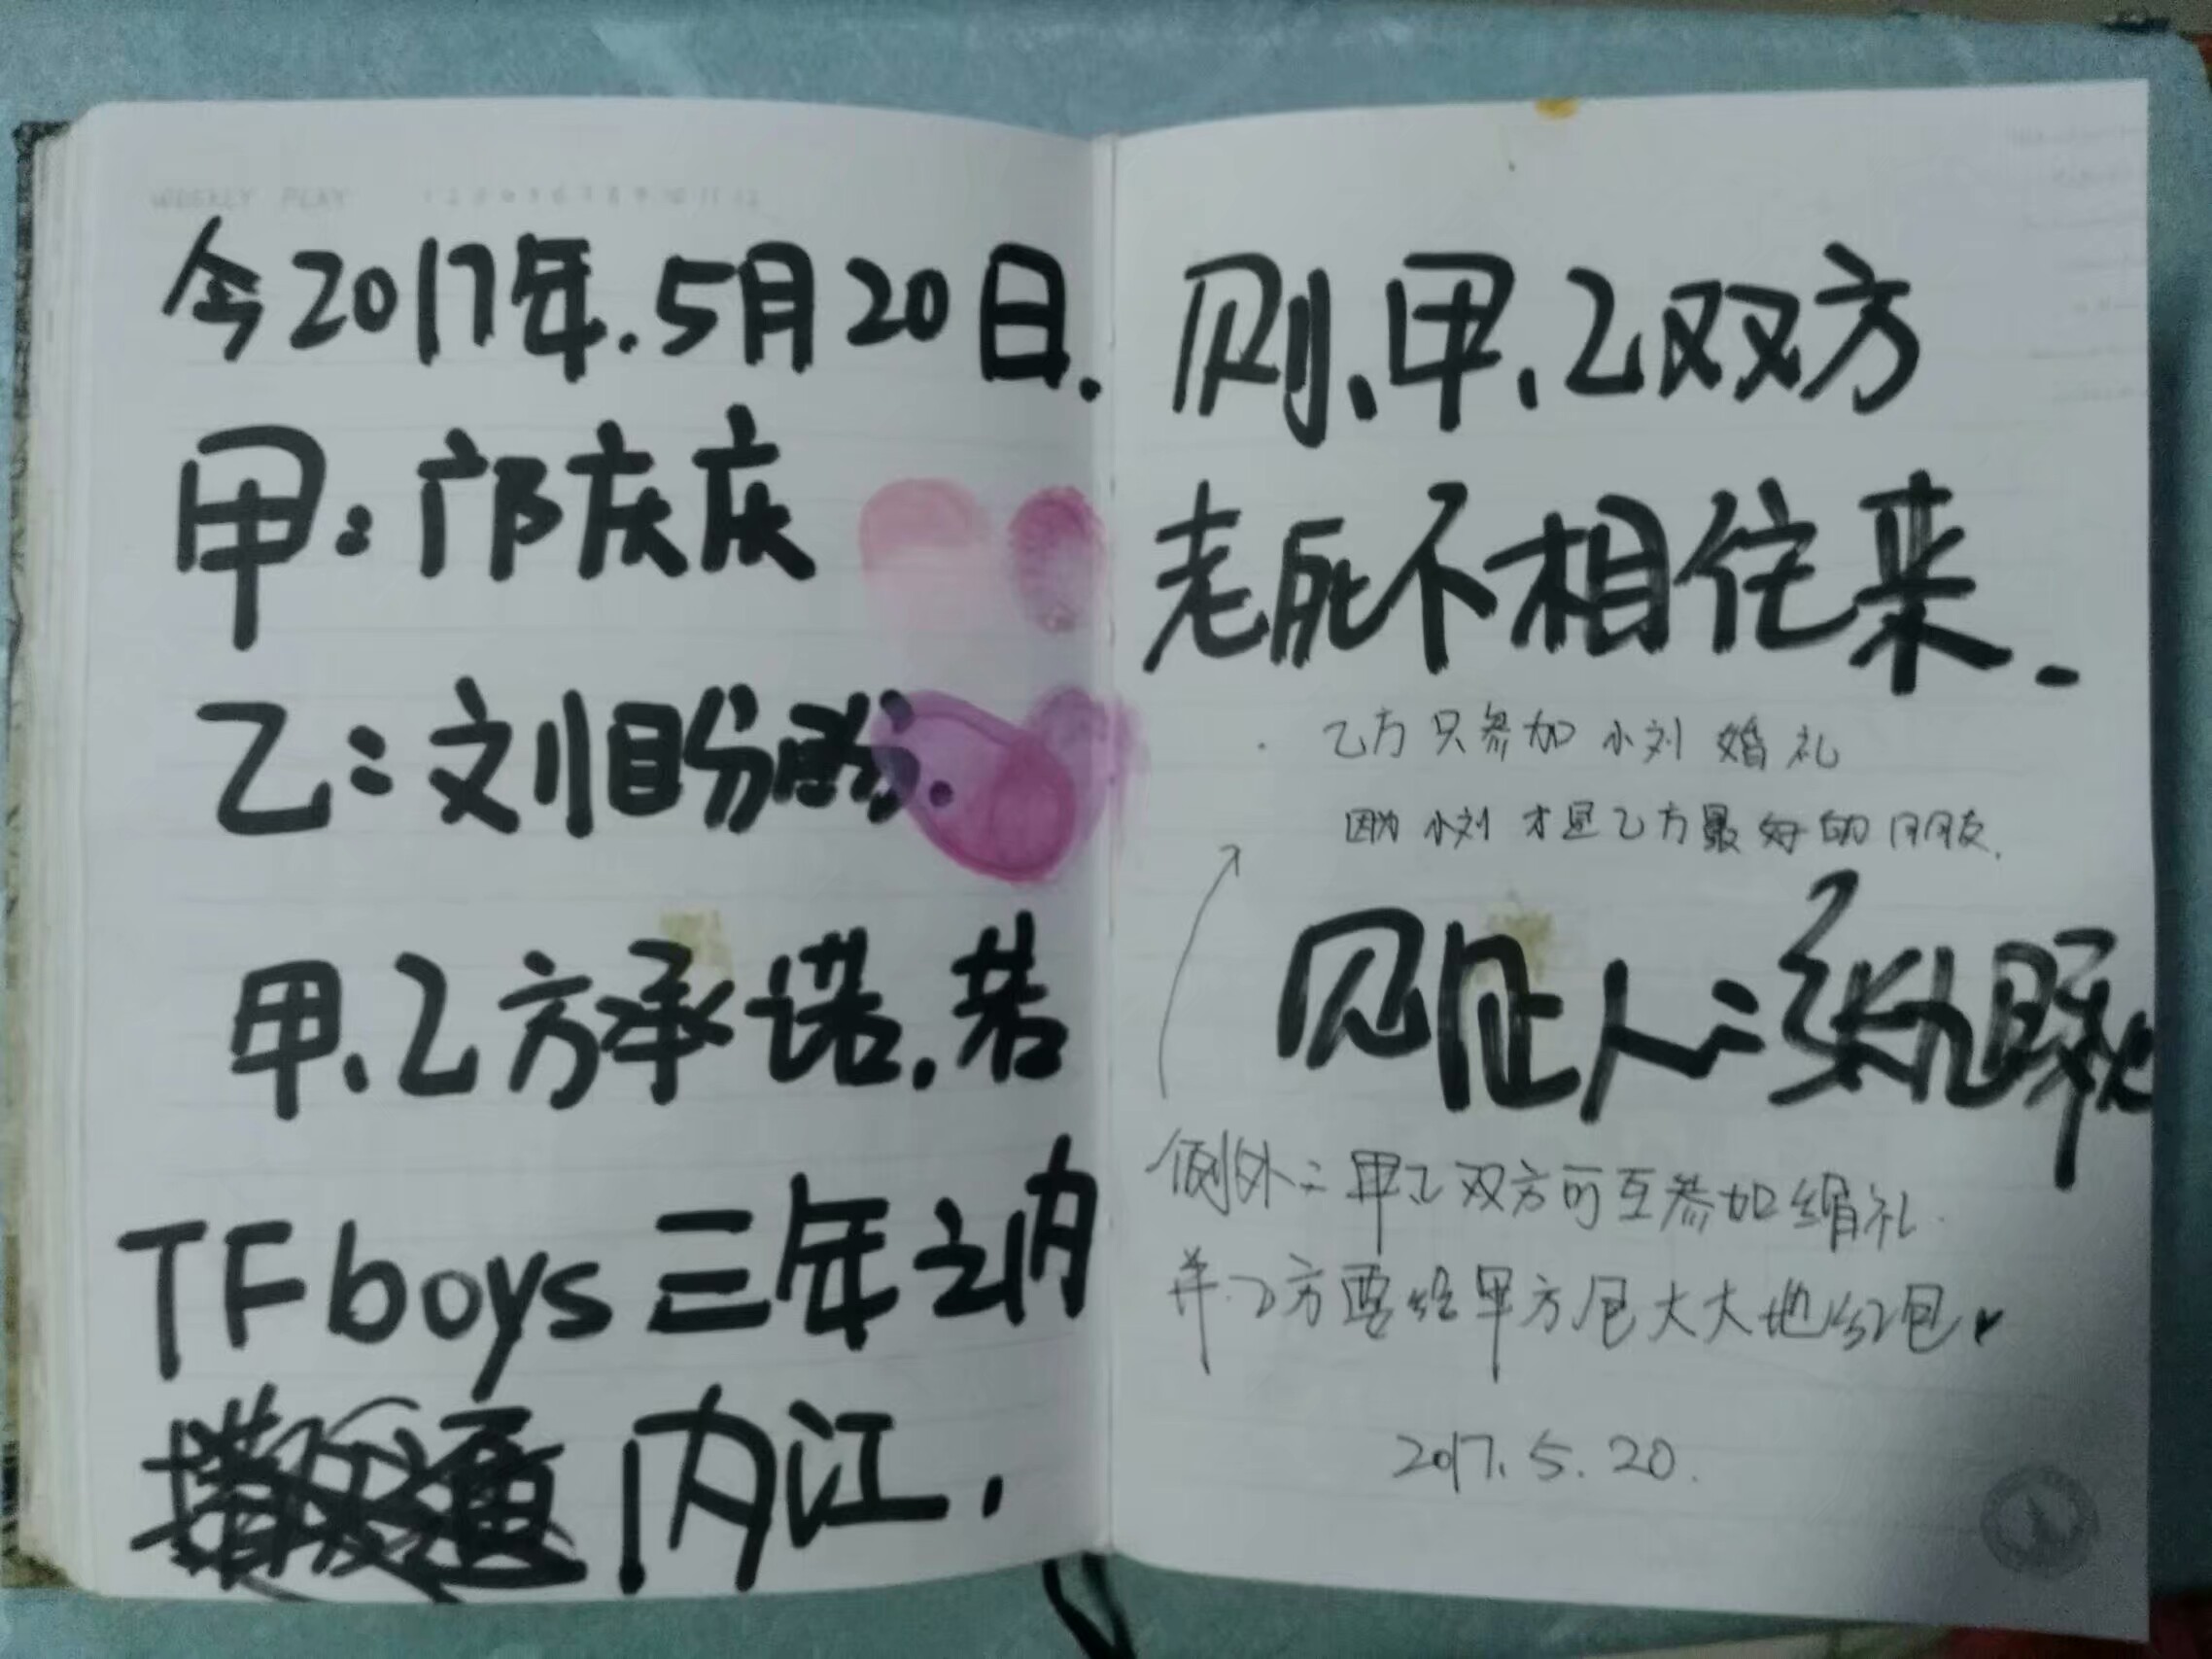 WEEKLY PLAY 1 2 3 4 5 6 7 8 9 10 11 12
今2017年.5月20日.
甲:邝庆庆
乙:刘盼盼
甲、乙方承诺,若
TFboys三年之内
内江,
则、甲、乙双方
老死不相往来.
乙方只参加小刘婚礼
因为小刘才是乙方最好的朋友.
见证人:张
例外:甲乙双方可互参加婚礼
并乙方要给甲方包大大地红包♥
2017.5.20.